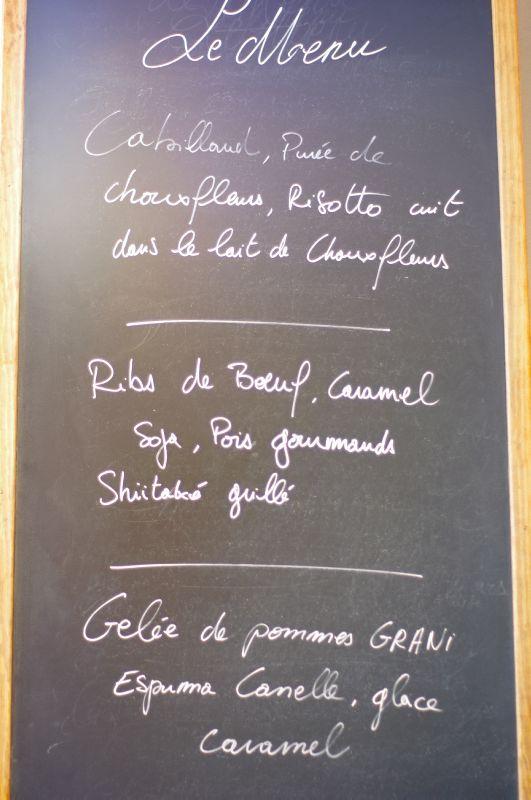 Le Menu
Cabillaud, Purée de
chouxfleurs, Risotto cuit
dans le lait de Chouxfleurs
Ribs de Bœuf, Caramel
Soja, Pois gourmands
Shiitaké grillé
Gelée de pommes GRANi
Espuma Canelle, glace
Caramel